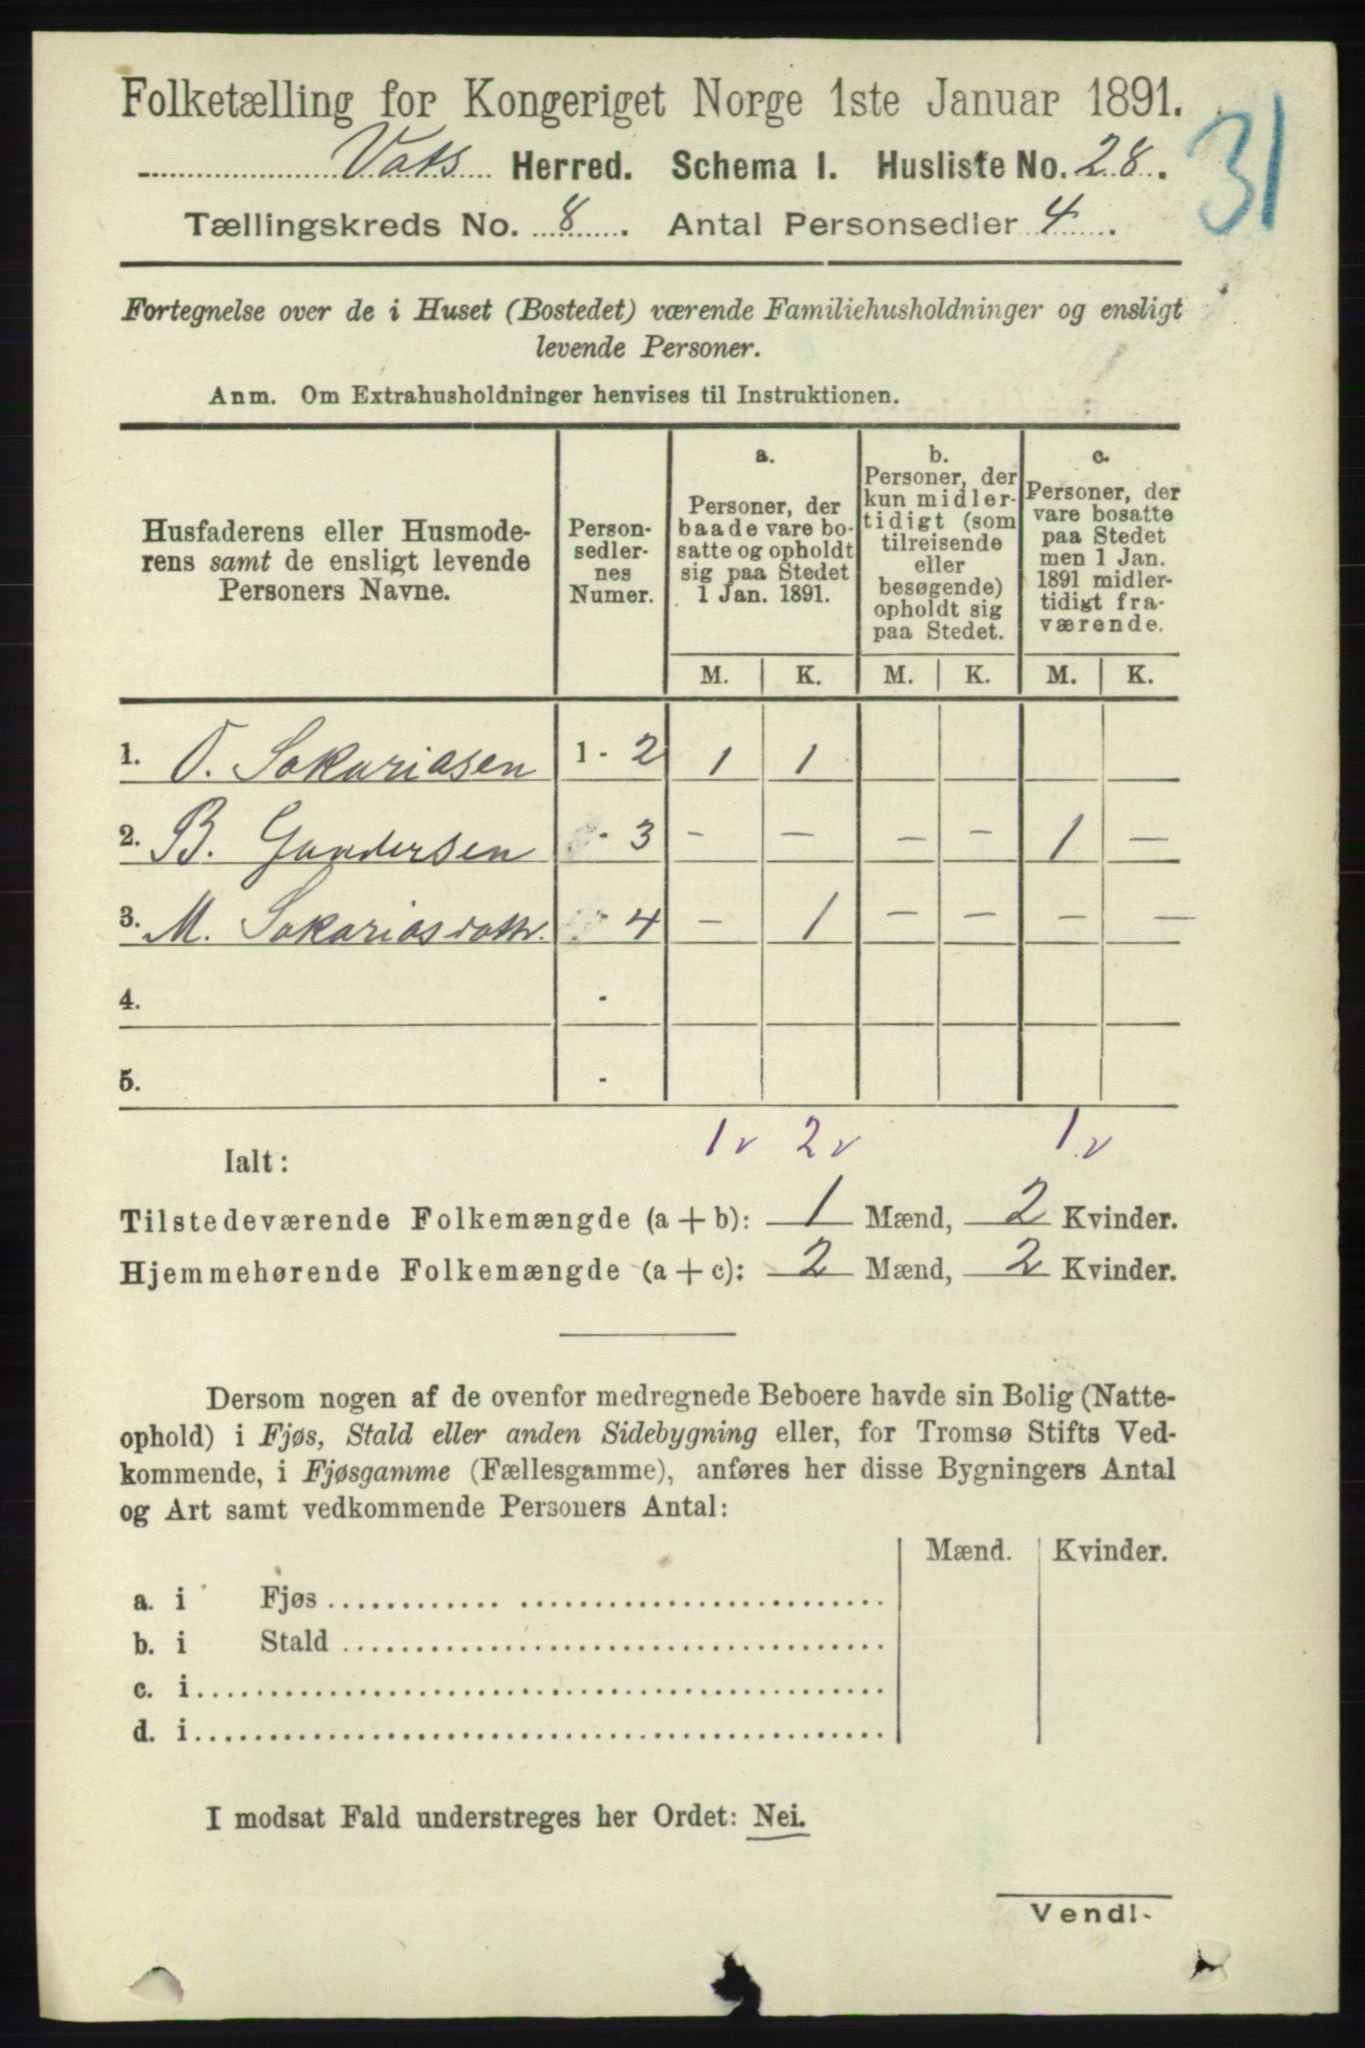 Folketælling for Kongeriget Norge 1ste Januar 1891.
31
Vats Herred. Schema I. Husliste No. 28.
Tællingskreds No. 8. Antal Personsedler 4.
Fortegnelse over de i Huset (Bostedet) værende Familiehusholdninger og ensligt
levende Personer.
Anm. Om Extrahusholdninger henvises til Instruktionen.
Husfaderens eller Husmode-
rens samt de ensligt levende
Personers Navne.
Person-
sedler-
nes
Numer.
a.
Personer, der
baade vare bo-
satte og opholdt
sig paa Stedet
1 Jan. 1891.
b.
Personer, der
kun midler-
tidigt (som
tilreisende
eller
besøgende)
opholdt sig
paa Stedet.
c.
Personer, der
vare bosatte
paa Stedet
men 1 Jan.
1891 midler-
tidigt fra-
værende.
M. K. M. K. M. K.
1. O. Sakariasen 1 - 2 1 1
2. B. Gundersen - 3 - - - - 1 -
3. M. Sakariasdattr. 4 - 1 - - - -
4. -
5. -
1 v 2 v 1 v
Ialt:
Tilstedeværende Folkemængde (a + b): 1 Mænd, 2 Kvinder.
Hjemmehørende Folkemængde (a + c): 2 Mænd, 2 Kvinder.
Dersom nogen af de ovenfor medregnede Beboere havde sin Bolig (Natte-
ophold) i Fjøs, Stald eller anden Sidebygning eller, for Tromsø Stifts Ved-
kommende, i Fjøsgamme (Fællesgamme), anføres her disse Bygningers Antal
og Art samt vedkommende Personers Antal:
Mænd. Kvinder.
a. i Fjøs
b. i Stald
c. i
d. i
I modsat Fald understreges her Ordet: Nei.
Vend!